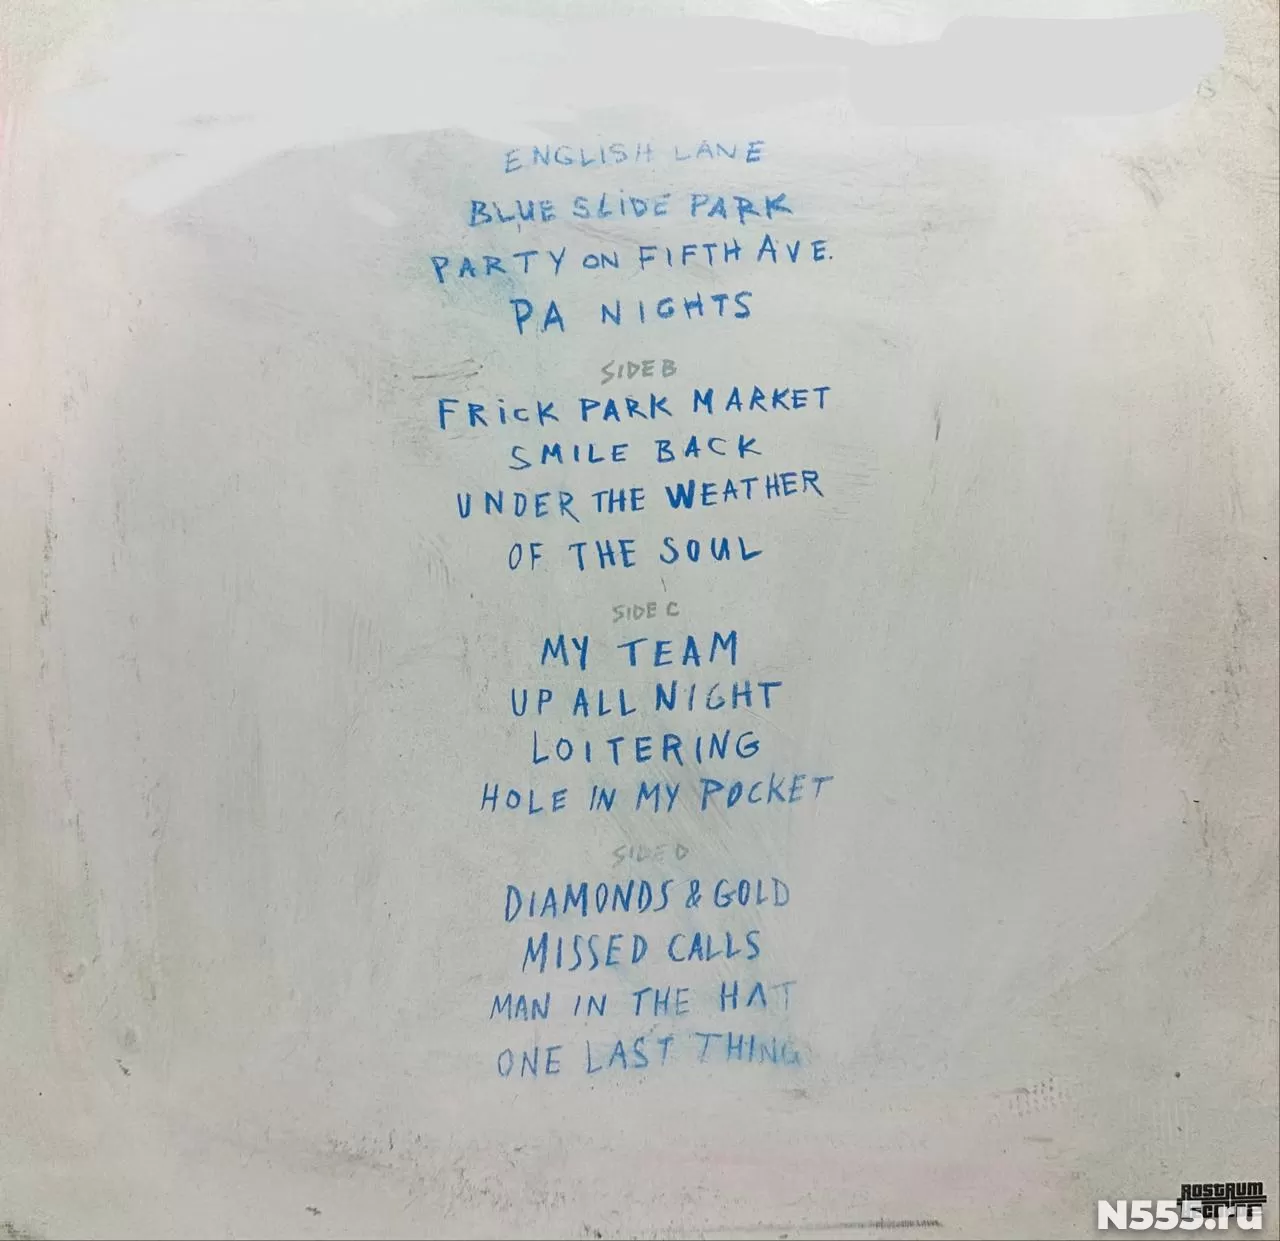 ENGLISH LANE
BLUE SLIDE PARK
PARTY ON FIFTH AVE.
PA NIGHTS
SIDE B
FRICK PARK MARKET
SMILE BACK
UNDER THE WEATHER
OF THE SOUL
SIDE C
MY TEAM
UP ALL NIGHT
LOITERING
HOLE IN MY POCKET
SIDE D
DIAMONDS & GOLD
MISSED CALLS
MAN IN THE HAT
ONE LAST THING
ROSTRUM
N555.ru